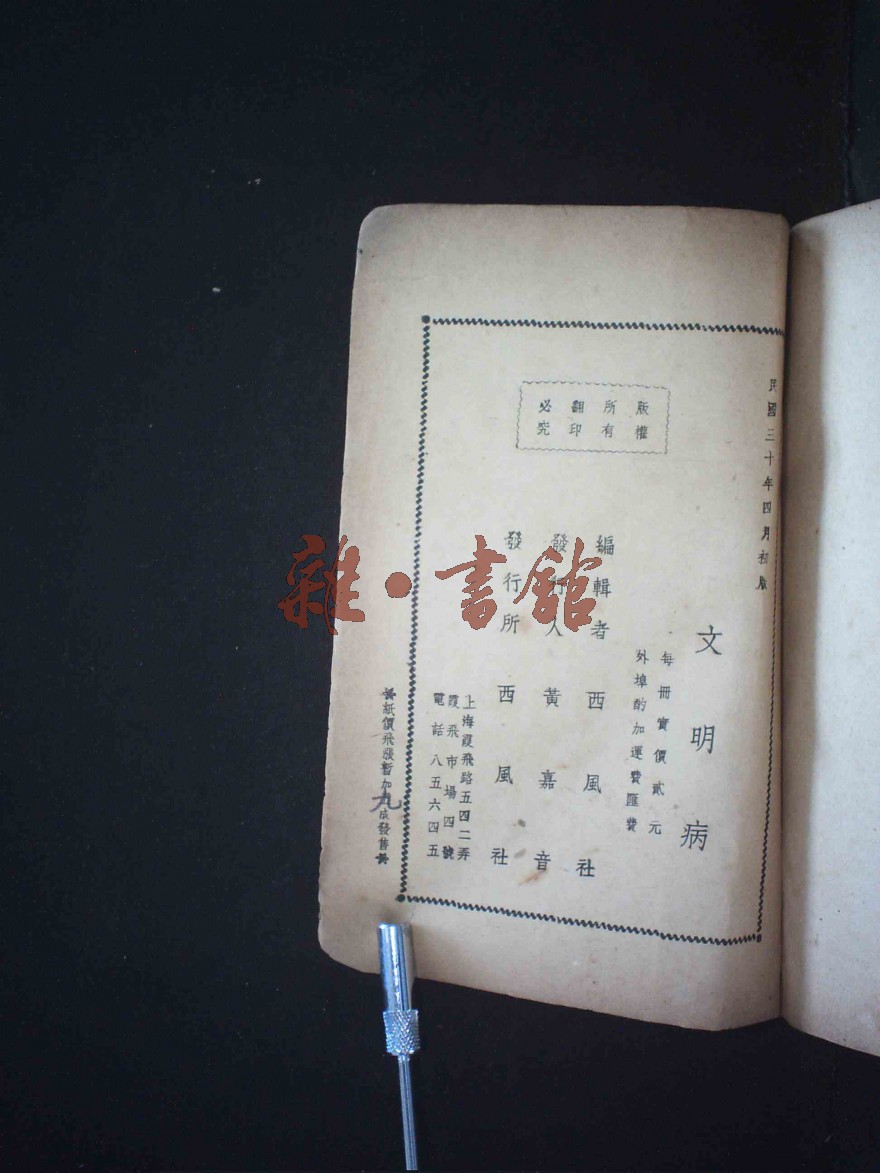 民國三十年四月初版
文明病
每冊實價貳元
外埠酌加運費匯費
編輯者 西風社
發行人 黃嘉音
發行所 西風社
上海霞飛路五四二弄
霞飛市場四號
電話八五六四五
版權
所有
翻印
必究
紙價飛漲暫加九成發售
雜·書館